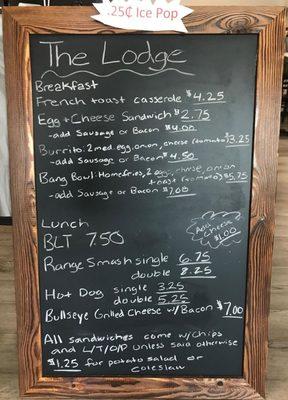 .25¢ Ice Pop
The Lodge
Breakfast
French toast casserole $4.25
Egg + Cheese Sandwich $2.75
-add Sausage or Bacon $4.00
Burrito: 2 med. egg, onion, cheese (tomato) $3.25
-add Sausage or Bacon $4.50
Bang Bowl: Homefries, 2 egg, cheese, onion
toast (tomato) $5.75
-add Sausage or Bacon $7.00
Add
Cheese
$1.00
Lunch
BLT 7.50
Range Smash single 6.75
double 8.25
Hot Dog single 3.25
double 5.25
Bullseye Grilled Cheese w/ Bacon $7.00
All sandwiches come w/ chips
and L/T/O/P unless said otherwise
$1.25 for potato salad or
coleslaw